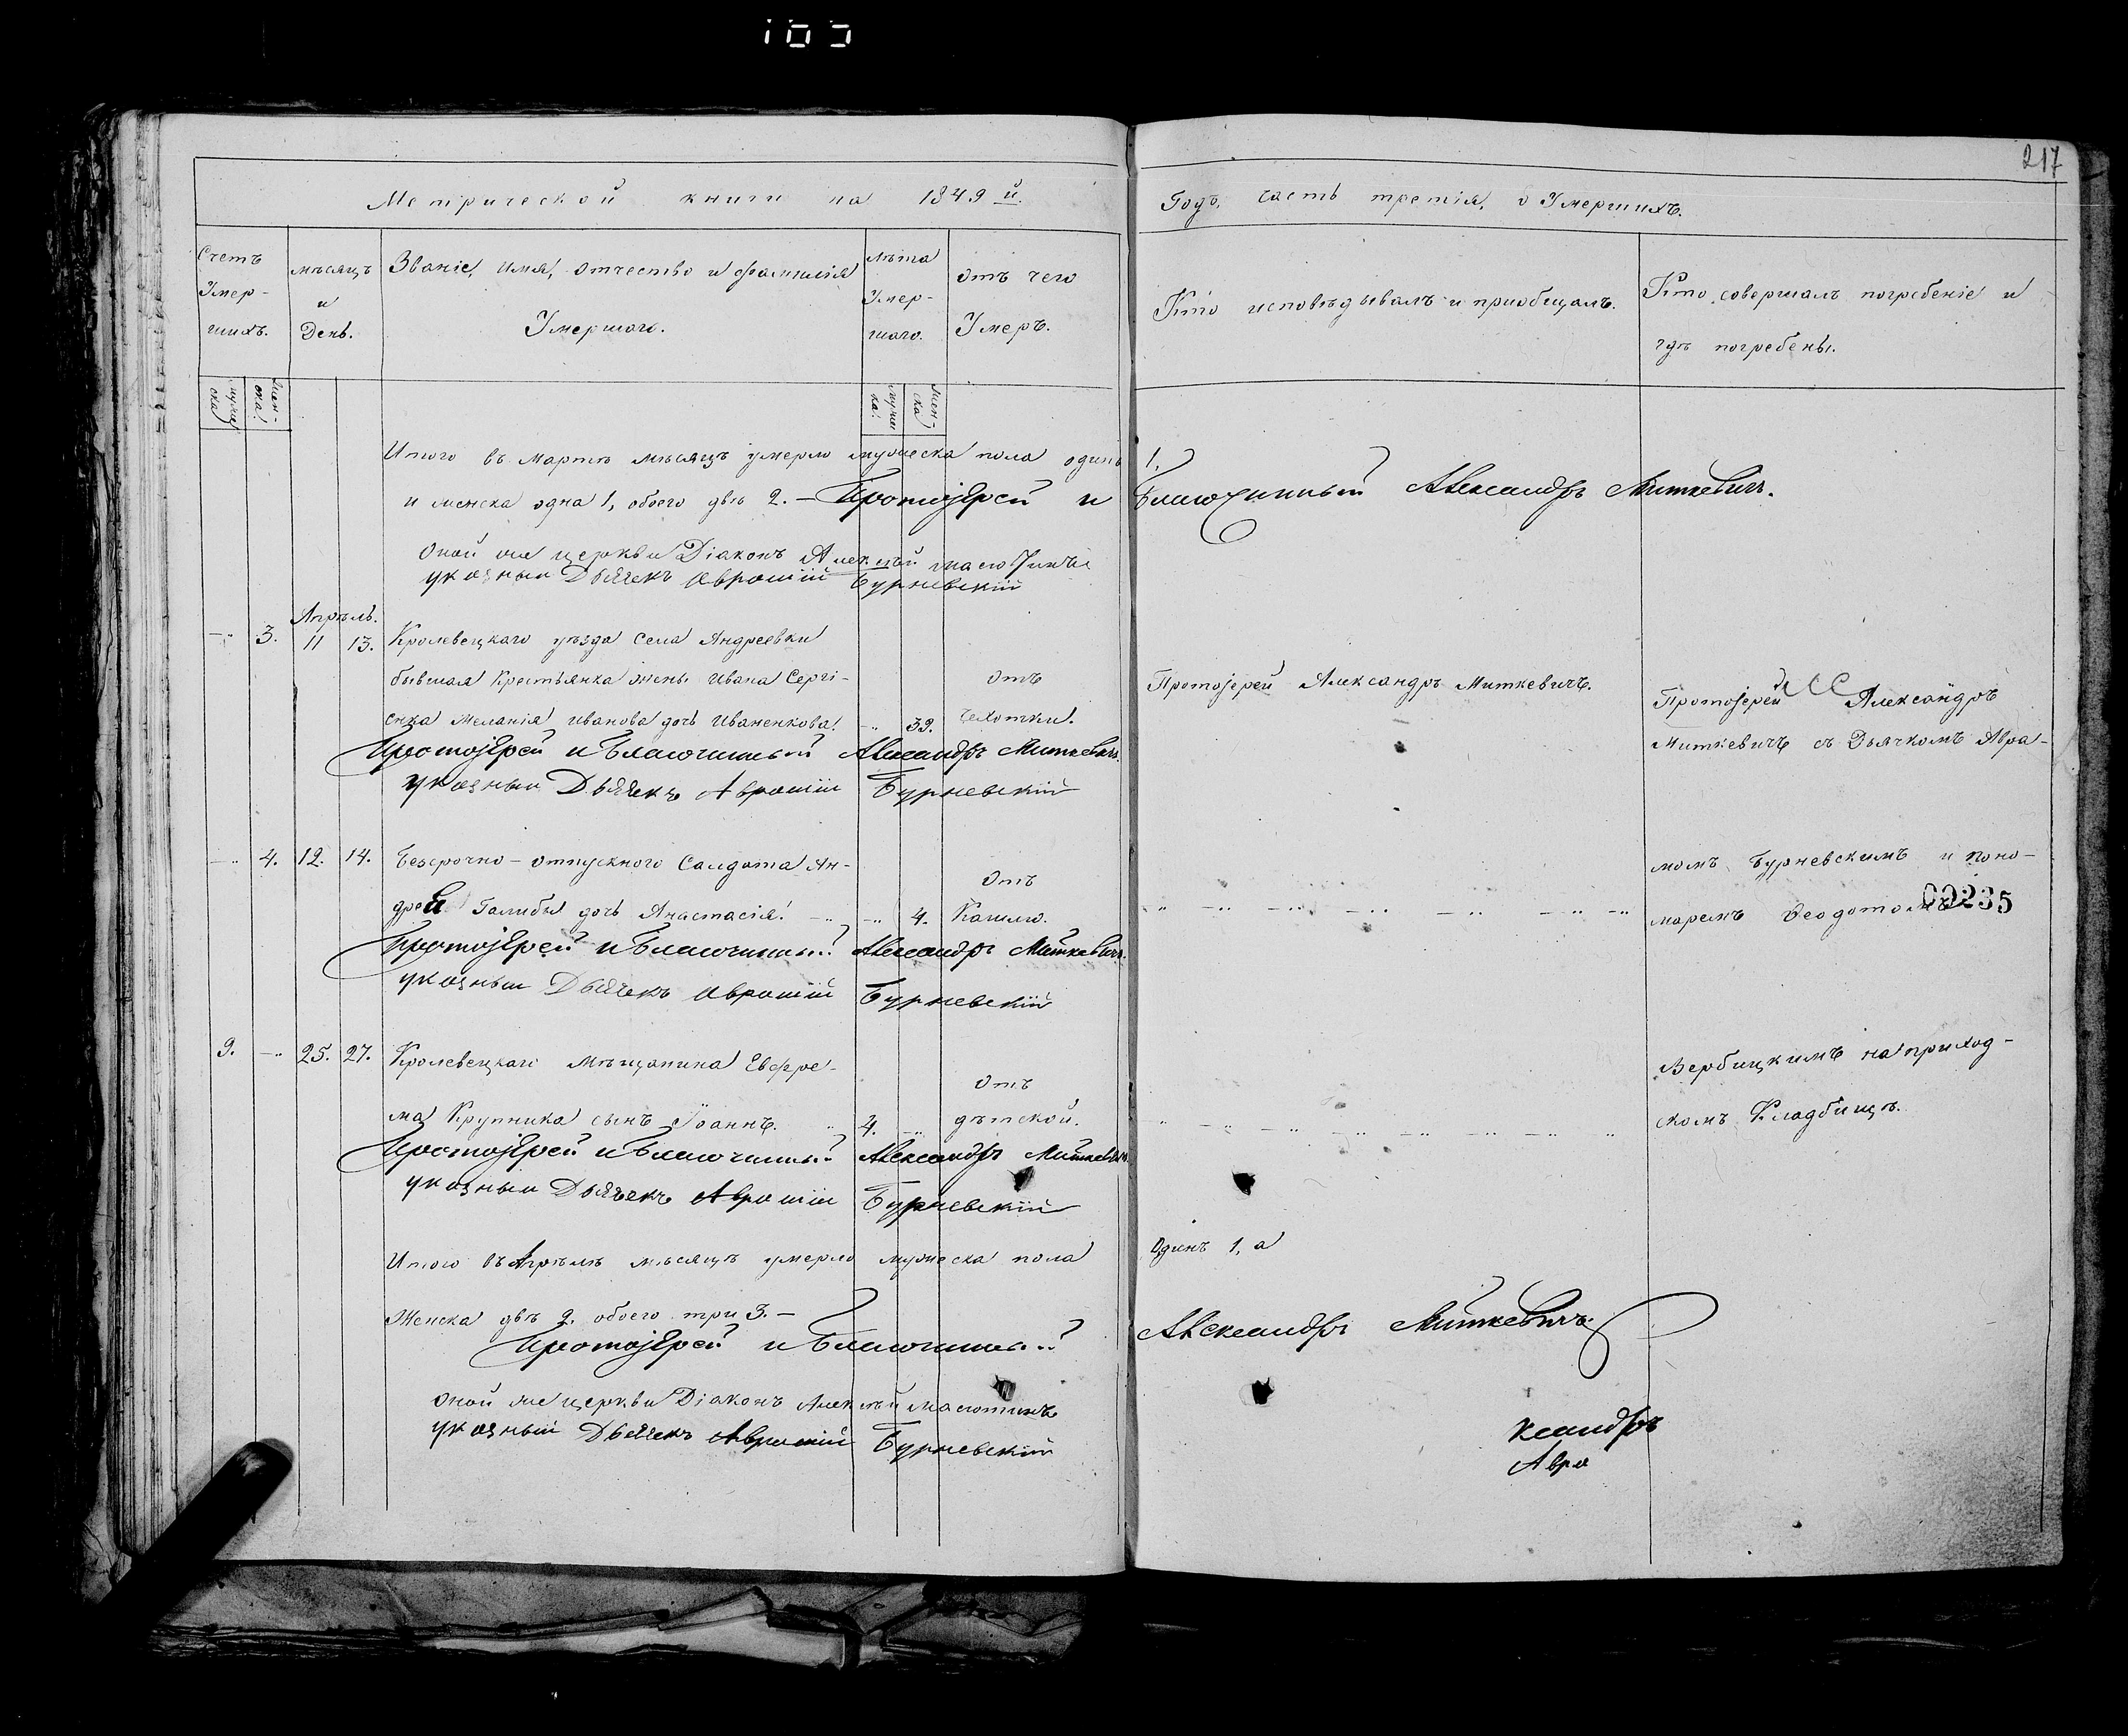 165
217
Метрической книги на 1849й.
Годъ, часть третія, о Умершихъ.
Счетъ Умер-шихъ.
мѣсяцъ и День.
Званіе, имя, отчество и фамилія Умершаго.
лѣта Умер-шаго.
отъ чего Умеръ.
Кто исповѣдывалъ и пріобщалъ.
Кто совершалъ погребеніе и гдѣ погребены.
мужеска
женска
мужеска
женска
Итого въ Мартѣ мѣсяцѣ умерло мужеска пола одинъ 1,
и женска одна 1, обоего двѣ 2. – Протоіерей и Благочинный Александръ Миткевичъ.
Оной же церкви Діаконъ Алексѣй
указный Дьячекъ Аврамій Бурневскій
Апрѣль.
-..- 3. 11 13. Кролевецкаго уѣзда села Андреевки
бывшая Крестьянка жена Ивана Сергі-
енка Меланія Иванова дочь Иваненкова. 39. отъ чехотки.
Протоіерей Александръ Миткевичъ.
Протоіерей Александръ
Миткевичъ съ Дьячкомъ Авра-
Протоіерей и Благочинный Александръ Миткевичъ.
указный Дьячекъ Аврамій Бурневскій
-..- 4. 12. 14. Безсрочно-отпускного Салдата Ан-
дрея Галибы дочь Анастасія. 4. отъ Кашлю.
момъ Бурневскимъ и поно-
маремъ Ѳеодотомъ
00235
Протоіерей и Благочинный Александръ Миткевичъ.
указный Дьячекъ Аврамій Бурневскій
9. -..- 25. 27. Кролевецкаго Мѣщанина Ефре-
ма Крупника сынъ Іоаннъ. 4. отъ дѣтской.
Вербицкимъ на приход-
скомъ Кладбищѣ.
Протоіерей и Благочинный Александръ Миткевичъ.
указный Дьячекъ Аврамій Бурневскій
Итого въ Апрѣлѣ мѣсяцѣ умерло мужеска пола Одинъ 1, а
Женска двѣ 2, обоего три 3. –
Протоіерей и Благочинный Александръ Миткевичъ.
Оной же церкви Діаконъ Алексѣй
указный Дьячекъ Аврамій Бурневскій
ксандръ
Авра